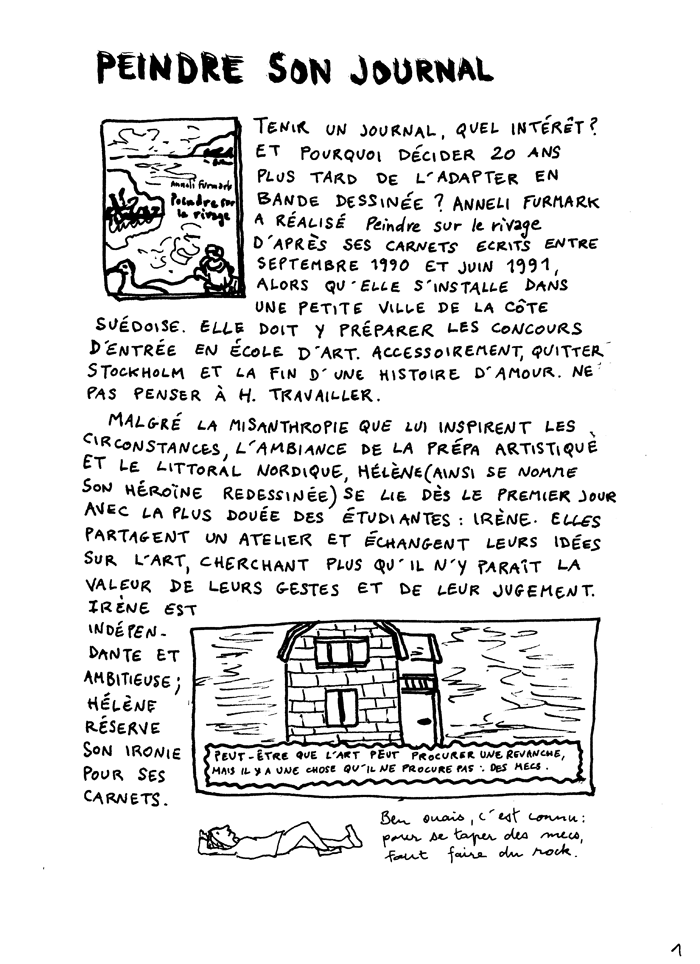 PEINDRE SON JOURNAL
Anneli Furmark
Peindre sur
le rivage
TENIR UN JOURNAL, QUEL INTÉRÊT?
ET POURQUOI DÉCIDER 20 ANS
PLUS TARD DE L'ADAPTER EN
BANDE DESSINÉE ? ANNELI FURMARK
A RÉALISÉ Peindre sur le rivage
D'APRÈS SES CARNETS ECRITS ENTRE
SEPTEMBRE 1990 ET JUIN 1991,
ALORS QU'ELLE S'INSTALLE DANS
UNE PETITE VILLE DE LA CÔTE
SUÉDOISE. ELLE DOIT Y PRÉPARER LES CONCOURS
D'ENTRÉE EN ÉCOLE D'ART. ACCESSOIREMENT, QUITTER
STOCKHOLM ET LA FIN D'UNE HISTOIRE D'AMOUR. NE
PAS PENSER À H. TRAVAILLER.
MALGRÉ LA MISANTHROPIE QUE LUI INSPIRENT LES
CIRCONSTANCES, L'AMBIANCE DE LA PRÉPA ARTISTIQUE
ET LE LITTORAL NORDIQUE, HÉLÈNE (AINSI SE NOMME
SON HÉROÏNE REDESSINÉE) SE LIE DÈS LE PREMIER JOUR
AVEC LA PLUS DOUÉE DES ÉTUDIANTES : IRÈNE. ELLES
PARTAGENT UN ATELIER ET ÉCHANGENT LEURS IDÉES
SUR L'ART, CHERCHANT PLUS QU'IL N'Y PARAÎT LA
VALEUR DE LEURS GESTES ET DE LEUR JUGEMENT.
IRÈNE EST
INDÉPEN-
DANTE ET
AMBITIEUSE ;
HÉLÈNE
RÉSERVE
SON IRONIE
POUR SES
CARNETS.
PEUT-ÊTRE QUE L'ART PEUT PROCURER UNE REVANCHE,
MAIS IL Y A UNE CHOSE QU'IL NE PROCURE PAS : DES MECS.
Ben ouais, c'est connu :
pour se taper des mecs,
faut faire du rock.
1